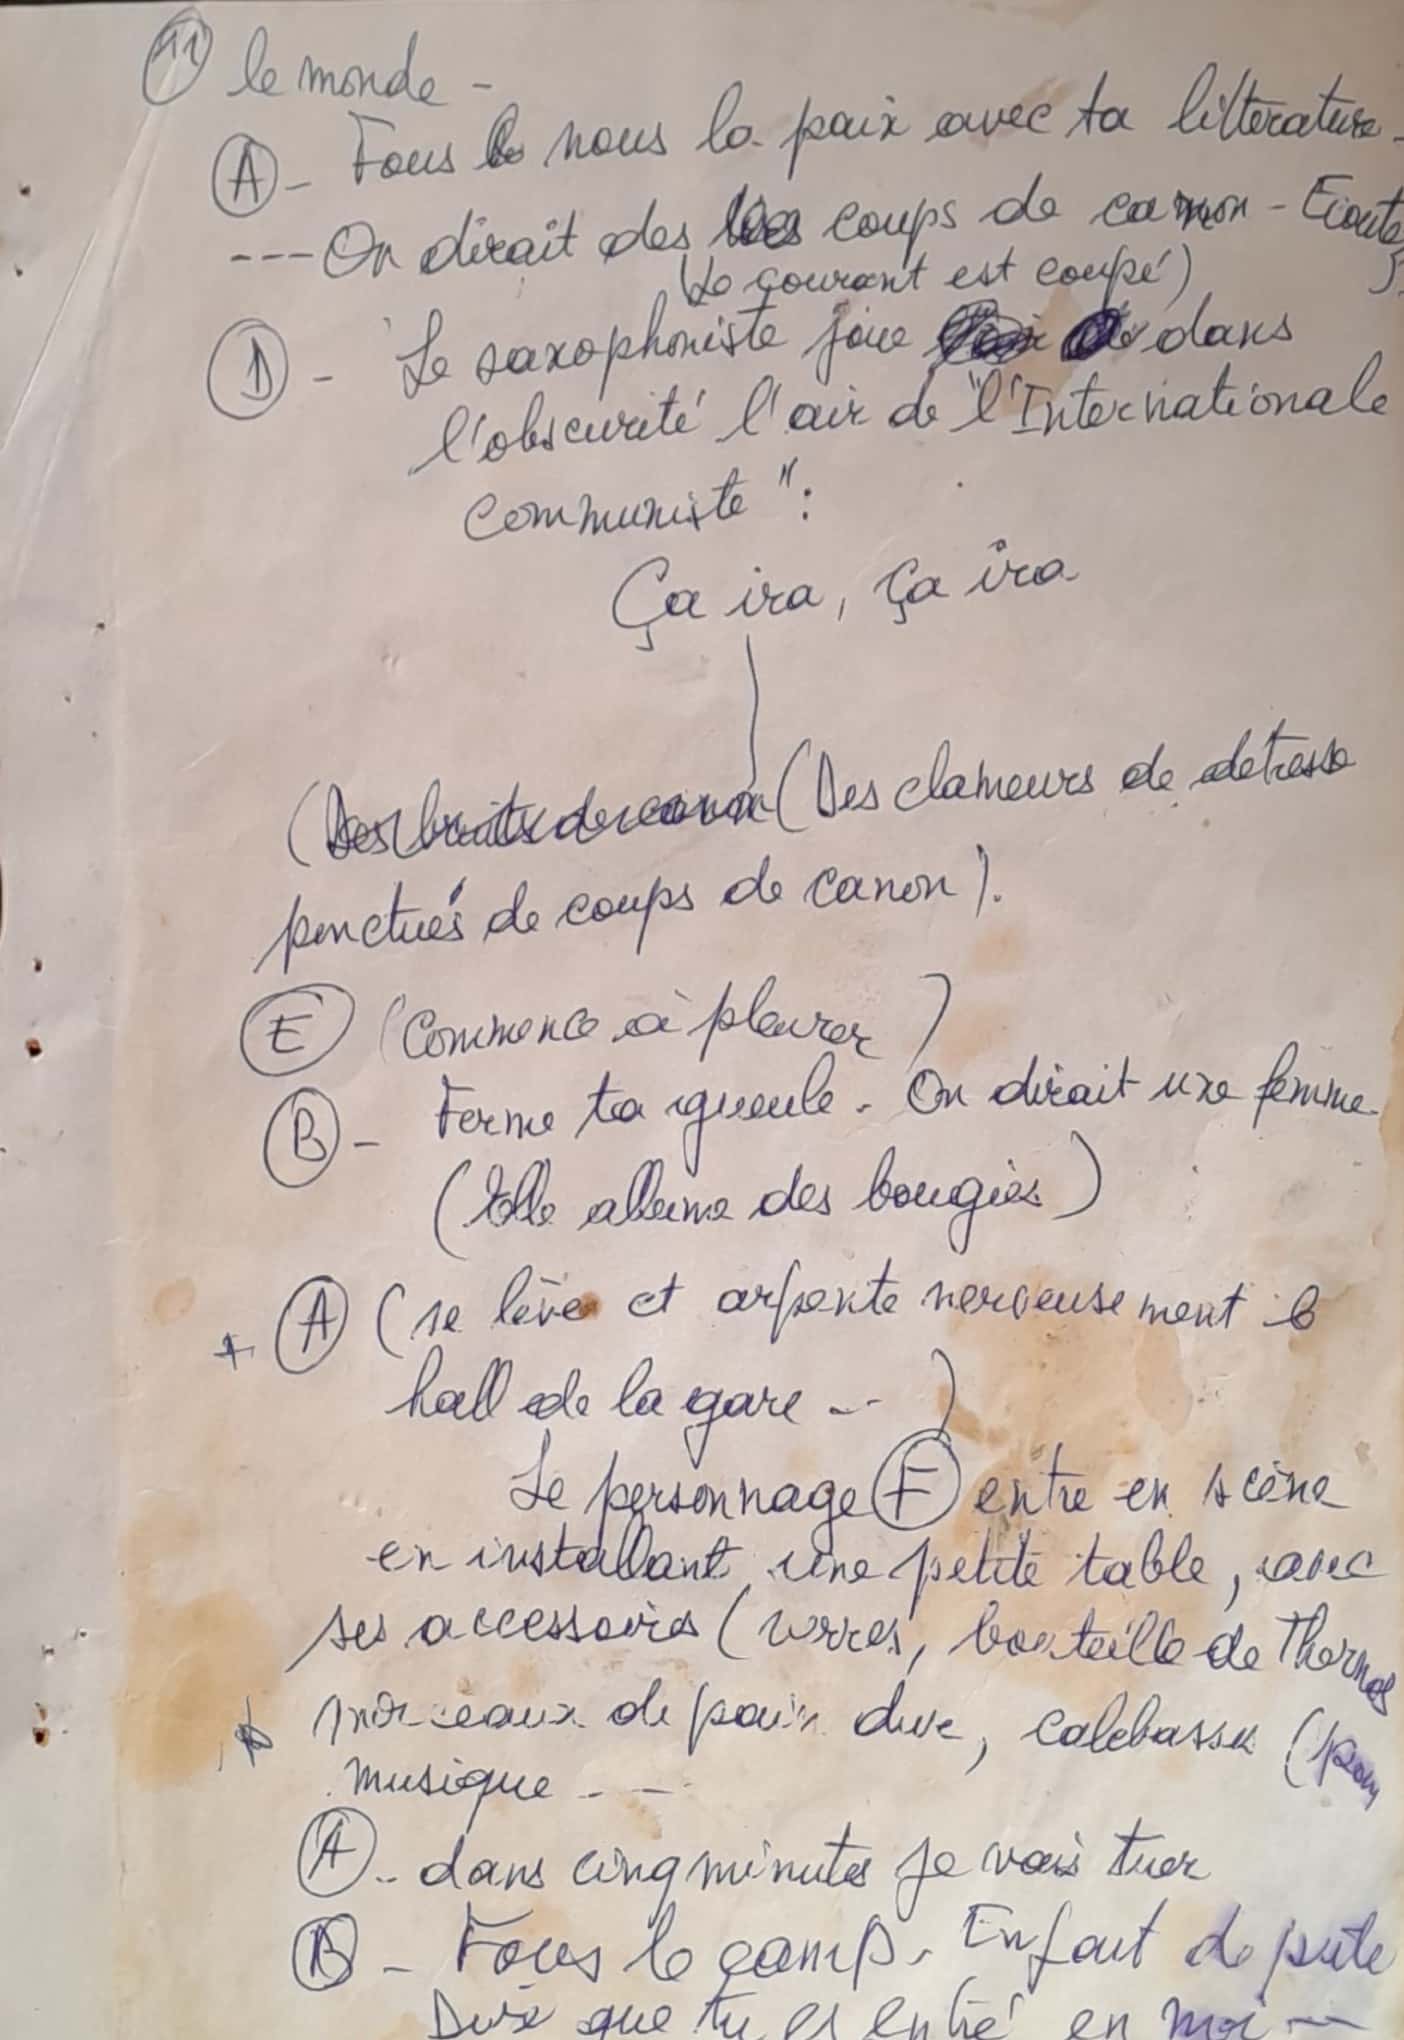 11 le monde -
A - Fous nous la paix avec ta littérature -
--- On dirait des coups de canon - Ecoute
(Le courant est coupé)
D - Le saxophoniste joue dans
l'obscurité l'air de "l'Internationale
communiste" :
Ça ira, ça ira
(Des bruits de canon (Des clameurs de detresse
ponctués de coups de canon).
E (Commence à pleurer)
B - Ferme ta gueule. On dirait une femme -
(Elle allume des bougies)
+ A (se lève et arpente nerveusement le
hall de la gare --)
Le personnage F entre en scène
en installant une petite table, avec
ses accessoires (verres, bouteille de Thermos
morceaux de pain dur, calebasse (pour
musique ---
A - dans cinq minutes je vais tuer
B - Fous le camp. Enfant de pute
Dire que tu es entré en moi --